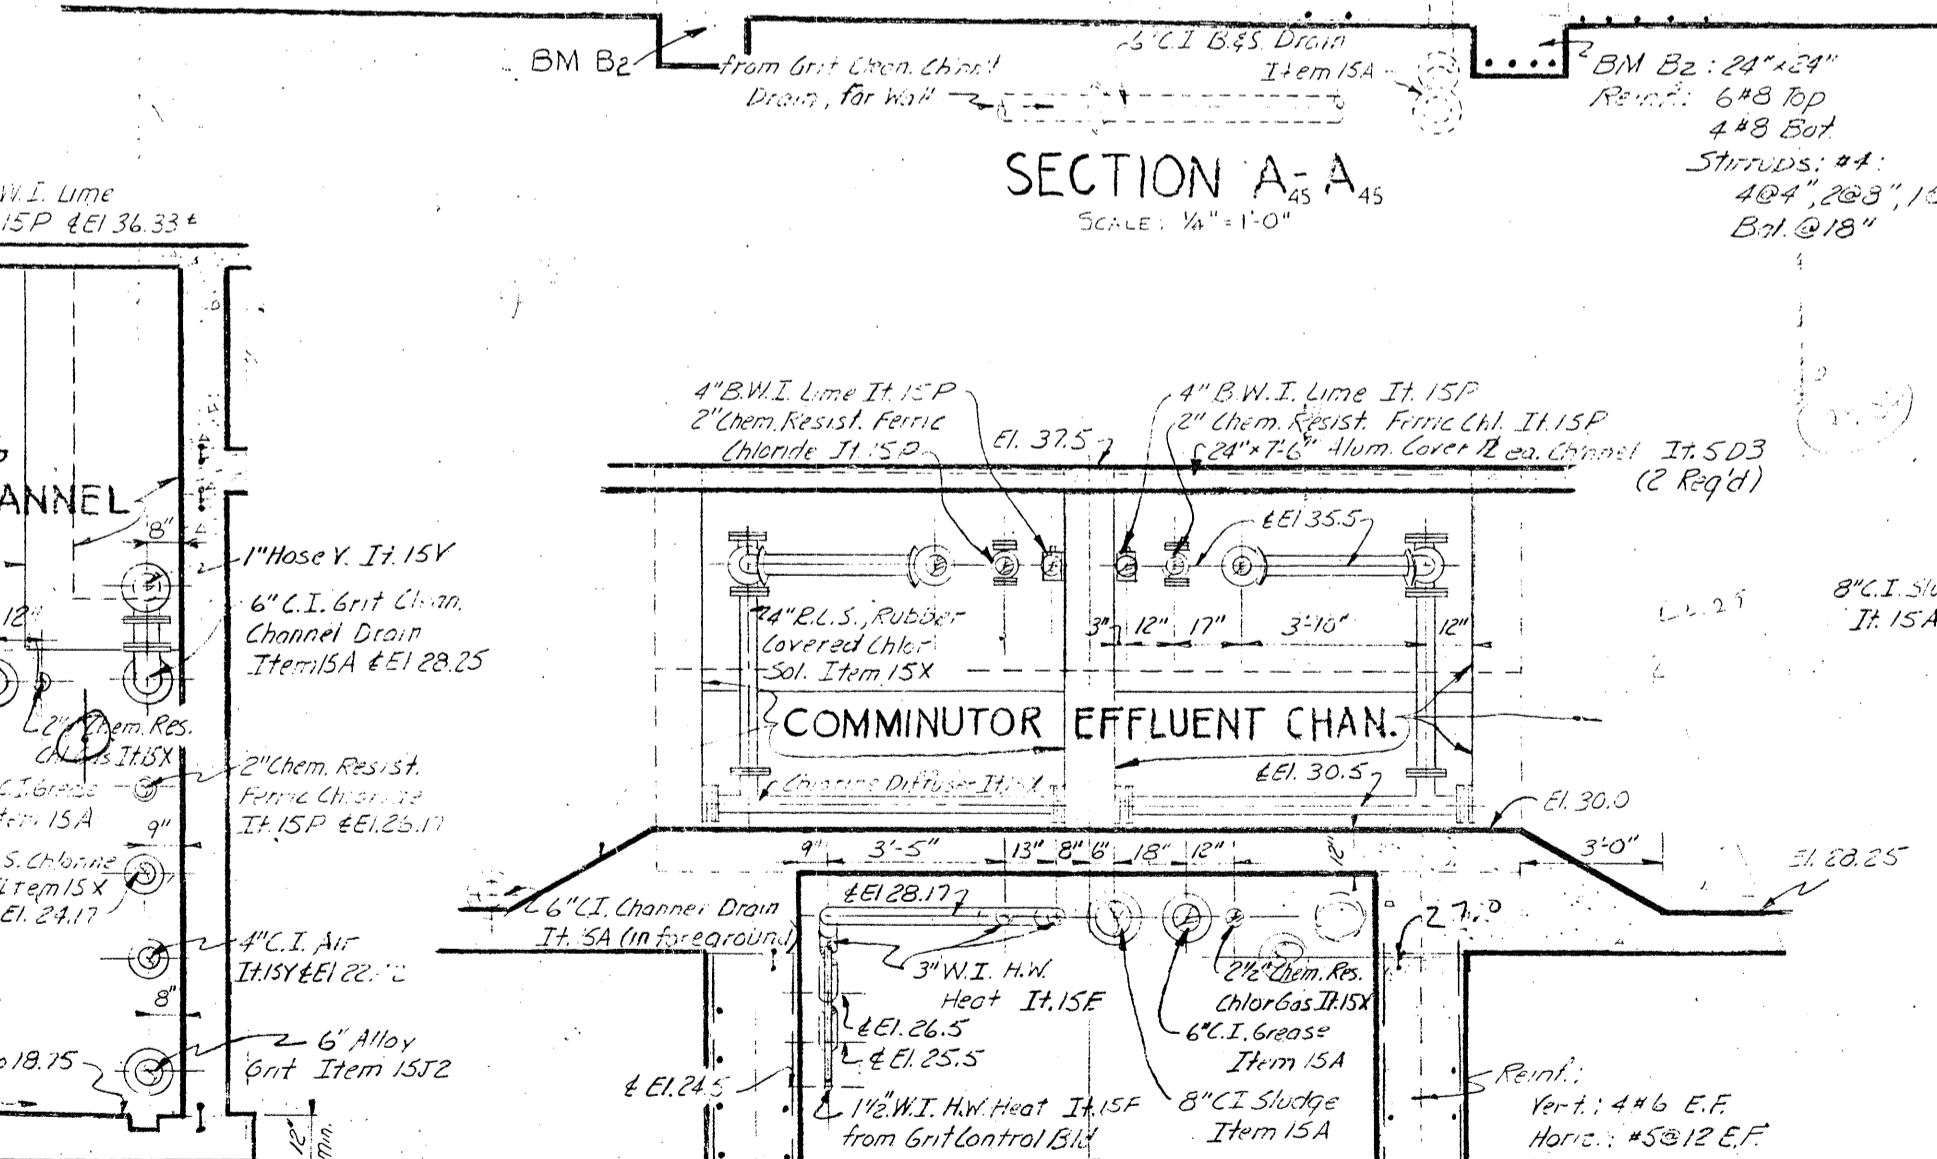 BM B2
from Grit Clean. Chan'l
Drain, far Wall
6" C.I. B.&S. Drain
Item 15A
BM B2: 24"x24"
Reinf.: 6#8 Top
4#8 Bot.
Stirrups: #4:
4@4", 2@8",
Bal. @18"
SECTION A45-A45
SCALE: 1/4"=1'-0"
W.I. Lime
15P ℄El 36.33±
ANNEL
8"
12"
1" Hose V. It. 15V
6" C.I. Grit Clean.
Channel Drain
Item 15A ℄El 28.25
2" Chem. Res.
It.15X
2" Chem. Resist.
Ferric Chloride
It. 15P ℄El.26.17
C.I. Grease
Item 15A
9"
S. Chlorine
Item 15X
El. 24.17
4" C.I. Air
It.15Y ℄El 22.
8"
6" Alloy
Grit Item 15J2
18.75
12"
min.
4" B.W.I. Lime It. 15P
2" Chem. Resist. Ferric
Chloride It. 15P
El. 37.5
4" B.W.I. Lime It. 15P
2" Chem. Resist. Ferric Chl. It. 15P
24"x7'-6" Alum. Cover ℄ ea. Channel It. 5D3
(2 Req'd)
℄El 35.5
4" R.L.S., Rubber
Covered Chlor
Sol. Item 15X
3" 12" 17" 3'-10" 12"
8" C.I. Slu
It. 15A
COMMINUTOR EFFLUENT CHAN.
Chlorine Diffuser It.15X
℄El. 30.5
El. 30.0
9" 3'-5" 13" 8" 6" 18" 12"
12"
3'-0"
El. 28.25
℄El 28.17
6" C.I. Channel Drain
It. 15A (in foreground)
27.0
3" W.I. H.W.
Heat It. 15F
2½" Chem. Res.
Chlor Gas It.15X
℄El. 26.5
℄El. 25.5
6" C.I. Grease
Item 15A
℄El. 24.5
1½" W.I. H.W. Heat It. 15F
from Grit Control Bld
8" CI Sludge
Item 15A
Reinf.:
Vert.: 4#6 E.F.
Horiz.: #5@12 E.F.